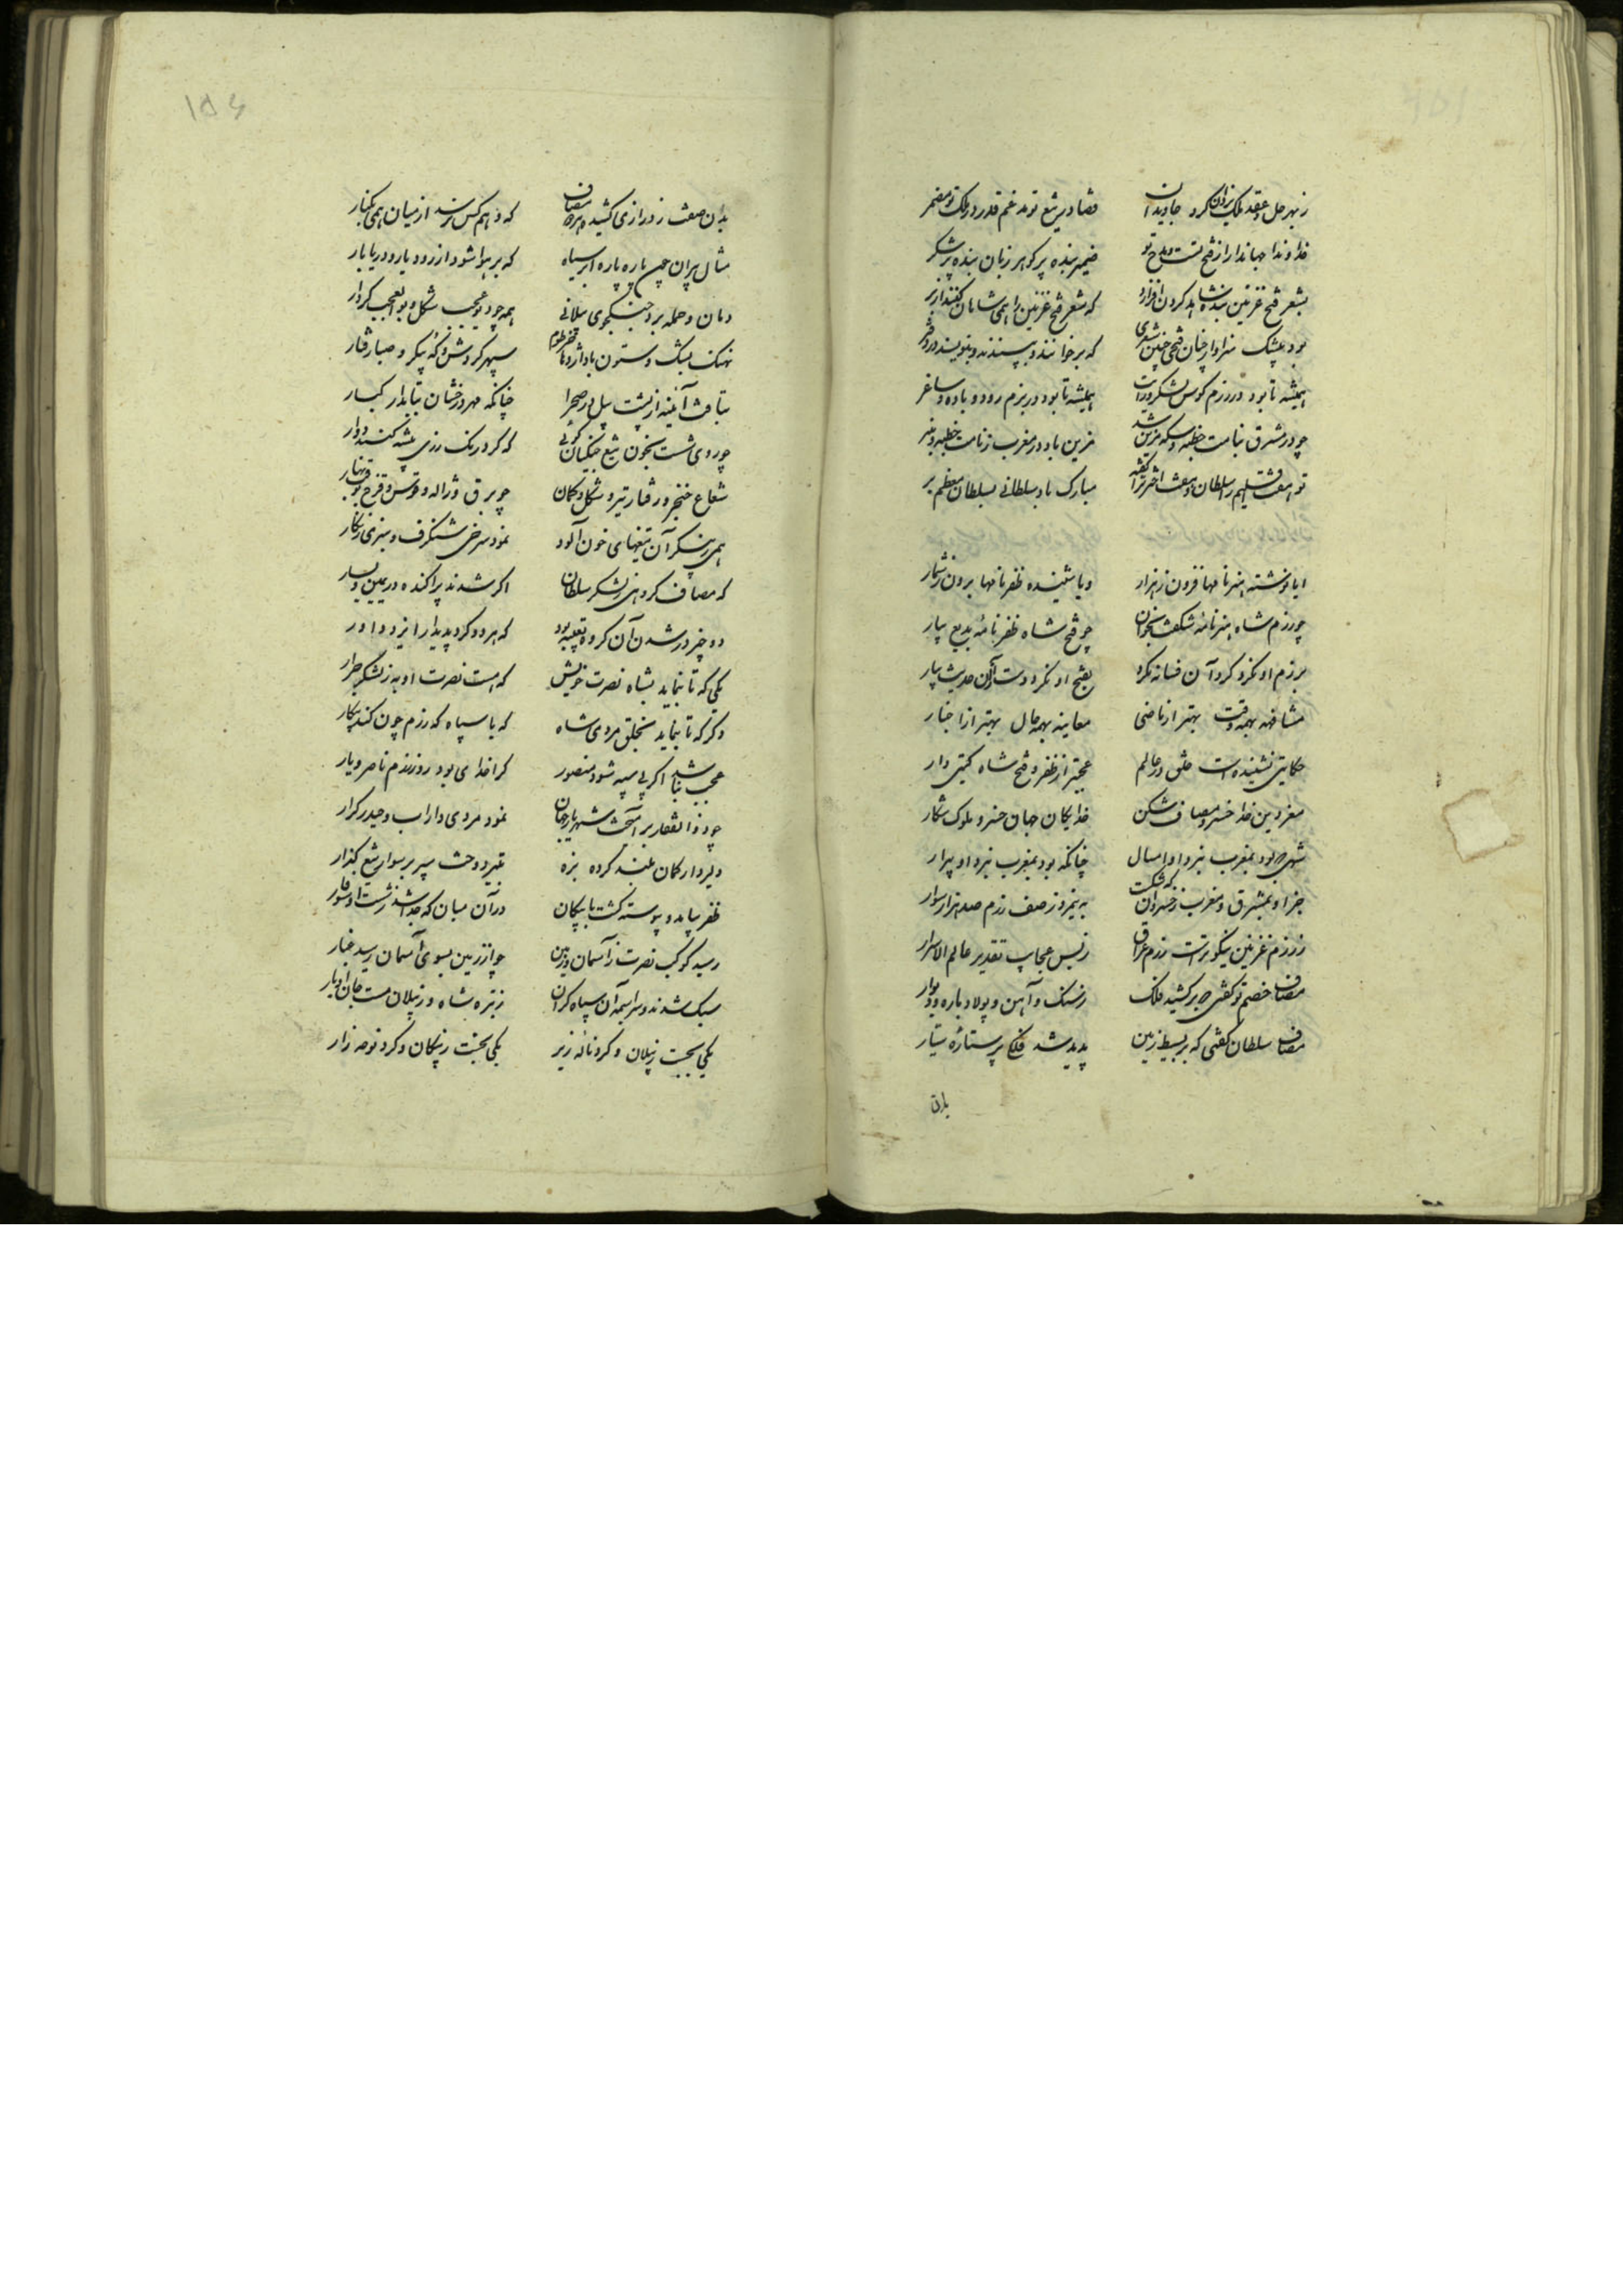 ز بهر حل و عقد ملک یزدان کرد جاویدان قضا در تیغ تو مدغم قدر در کلک تو مضمر
خداوندا جهاندارا ز فتح تست و مدح تو ضمیر بنده پر گوهر زبان بنده پر شکر
بشعر فتح غزنین بنده شاید گردن افرازد که شعر فتح غزنین را همی شاهان کنند از بر
بود بیشک سزاوار چنان فتحی چنین شعری که برخوانند و بپسندند و بنویسند در دفتر
همیشه تا بود در رزم کوس و لشکر و رایت همیشه تا بود در بزم رود و باده و ساغر
چو در مشرق بنامت خطبه و سکه مزین شد مزین باد در مغرب ز نامت خطبه و منبر
مبارک باد سلطانی بسلطان معظم بر
ایا نوشته هنرنامها فزون ز هزار و یا شنیده ظفرنامها برون ز شمار
چو رزم شاه هنرنامهٔ شگفت بخوان چو فتح شاه ظفرنامهٔ بدیع بیار
برزم او نگر و گرد آن فسانه مگرد بفتح او نگر و دست ازان حدیث بدار
مشافهه بهمه وقت بهتر از ماضی معاینه بهمه حال بهتر از اخبار
حکایتی نشنیده است خلق در عالم عجبتر از ظفر و فتح شاه گیتی دار
معز دین خدا خسرو مصاف شکن خدایگان جهان خسرو ملوک شکار
شهی که بود بمغرب نبرد او امسال چنانکه بود بمغرب نبرد او پیرار
جز او بمشرق و مغرب ز خسروان که شکست به نیمروز صف رزم صد هزار سوار
ز رزم غزنین نیکوترست رزم عراق ز بس عجایب تقدیر عالم الاسرار
مصاف خصم تو گفتی که برکشید فلک ز سنگ و آهن و پولاد باره و دیوار
مصاف سلطان گفتی که بر بسیط زمین پدید شد فلکی پر ستارهٔ سیار
بدان
بدان صفت ز درازی کشیده هر دو مصاف که وهم کس نرسد از میان همی بکنار
مثال پیران چون پاره پاره ابر سیاه که بر هوا شود از رود بار و دریا بار
دمان و حمله بر و جنگجوی پیلانی همه چو دیو عجب شکل و بوالعجب کردار
نهنگ یشک و ستون پا و اژدها خرطوم سپهر گردش و که پیکر و صبا رفتار
بتافت آینه از پشت پیل در صحرا چنانکه مهر درخشان بتابد از کهسار
چو روی شست بخون تیغ جنگیان گوئی که کرد رنگ رزی پیشه گنبد دوار
شعاع خنجر و رفتار تیر و شکل کمان چو برق و ژاله و قوس و قزح بوقت بهار
همی ز پیکر آن تیغهای خون آلود نمود سرخی شنگرف و سبزی زنگار
که مصاف گروهی ز لشکر سلطان اگر شدند پراکنده در یمین و یسار
دو چیز در شدن آن گروه تعبیه بود که هر دو کرد پدیدار ایزد دادار
یکی که تا بنماید بشاه نصرت خویش که هست نصرت او به ز لشکر جرار
دگر که تا بنماید بخلق مردی شاه که با سپاه که رزم چون کند پیکار
عجب نباشد اگر بی سپه شود منصور کرا خدای بود روز رزم ناصر و یار
چو ذوالفقار برآهخت شهریار جهان نمود مردی داراب و حیدر کرار
دلیروار کمان بلند کرده بزه بتیر دوخت سپر بر سوار تیغ گذار
ظفر بیامد و پیوسته گشت با پیکان در آن میان که جدا شد ز شست او سوفار
رسید کوکب نصرت ز آسمان بزمین چو از زمین بسوی آسمان رسید غبار
سبک شدند و سراسیمه آن سپاه گران ز تیر شاه و ز پیلان مست جان اوبار
یکی بجست ز پیلان و کرد ناله زیر یکی بجست ز پیکان و کرد نوحه زار